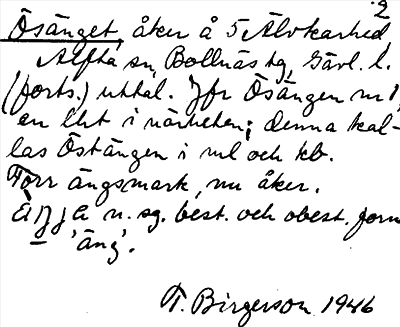 2
Ösänget, åker å 5 Älvkarhed
Alfta sn, Bollnäs tg, Gävl. l.
(forts.) uttal. Jfr Ösängen nr 1,
en lht i närheten; denna kal-
las Östängen i ml och kb.
Förr ängsmark, nu åker.
n. sg. best. och obest. form
'äng'.
T. Birgerson 1946